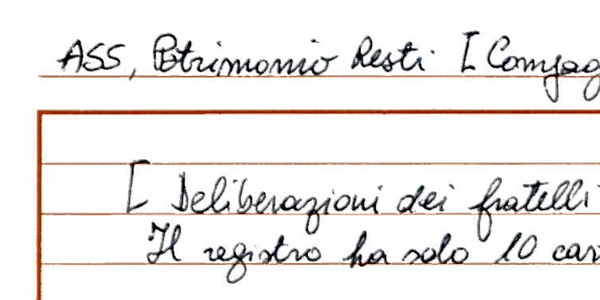 ASS, Patrimonio Resti [ Compag
[ Deliberazioni dei fratelli
Il registro ha solo 10 car